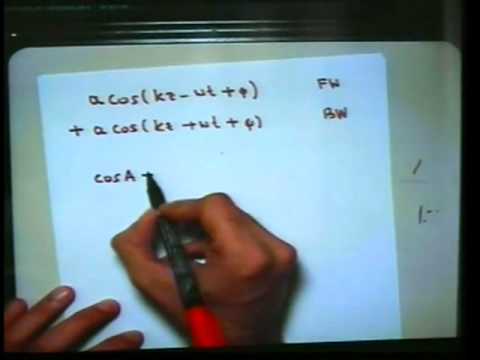 a cos(kz - wt + φ) FW
+ a cos(kz + wt + φ) BW
cosA +